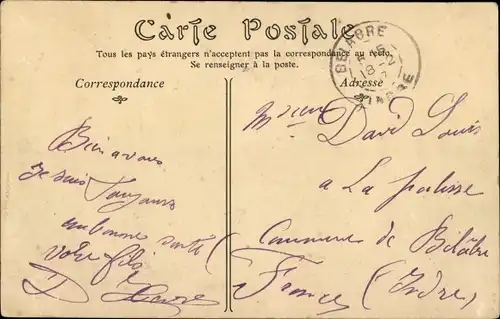 Carte Postale
Tous les pays étrangers n'acceptent pas la correspondance au recto.
Se renseigner à la poste.
BELABRE
INDRE
Correspondance
Adresse
Bien a vous
Je suis toujours
en bonne santé
votre fils
D
David Louis
a La palisse
Commune de Bélâbre
France (Indre)